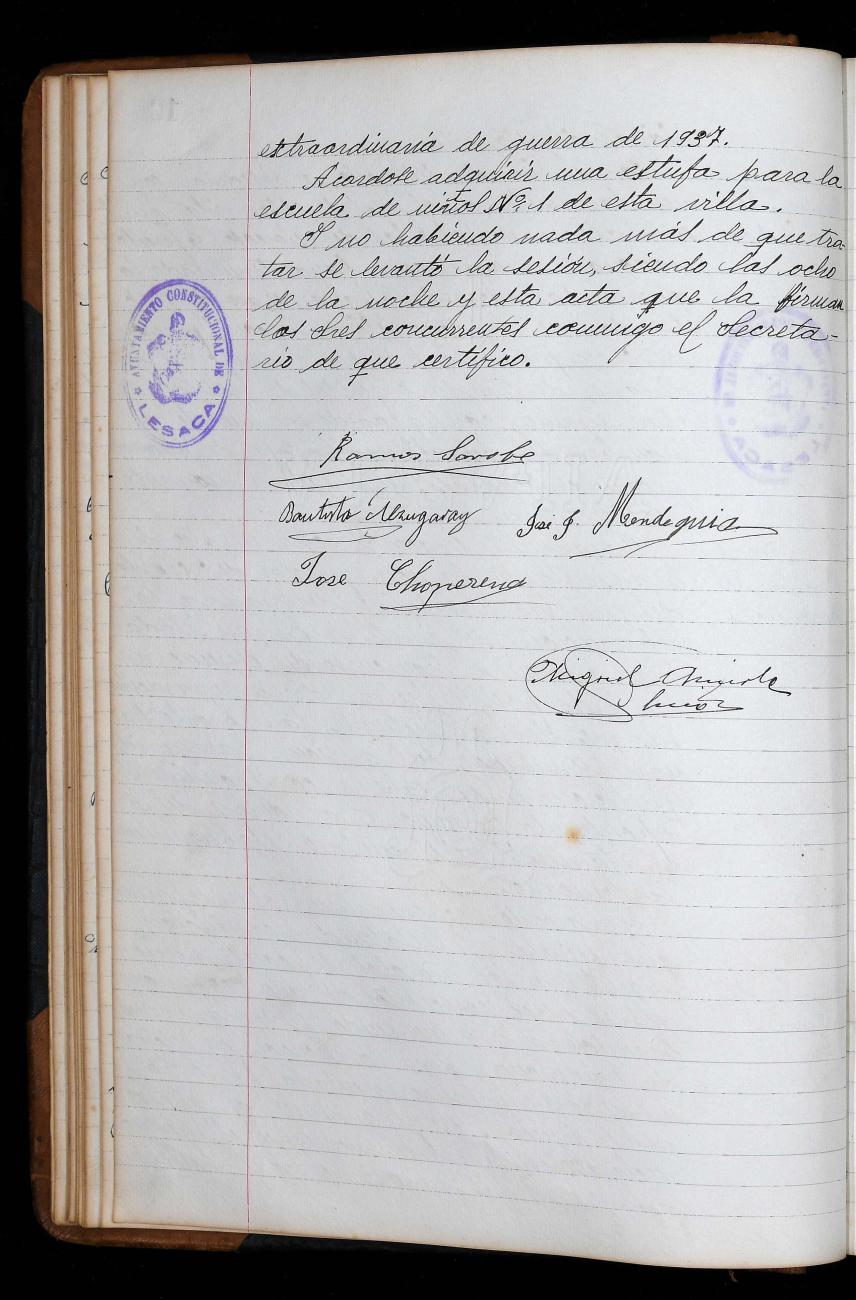 extraordinaria de guerra de 1937.
Acordose adquirir una estufa para la
escuela de niños Nº 1 de esta villa.
Y no habiendo nada más de que tra-
tar se levantó la sesión, siendo las ocho
de la noche y esta acta que la firman
los Sres concurrentes conmigo el Secreta-
rio de que certifico.
AYUNTAMIENTO CONSTITUCIONAL DE
LESACA
Ramos Sarobe
Bautista Alzugaray José J. Mendeguia
Jose Choperena
Miguel